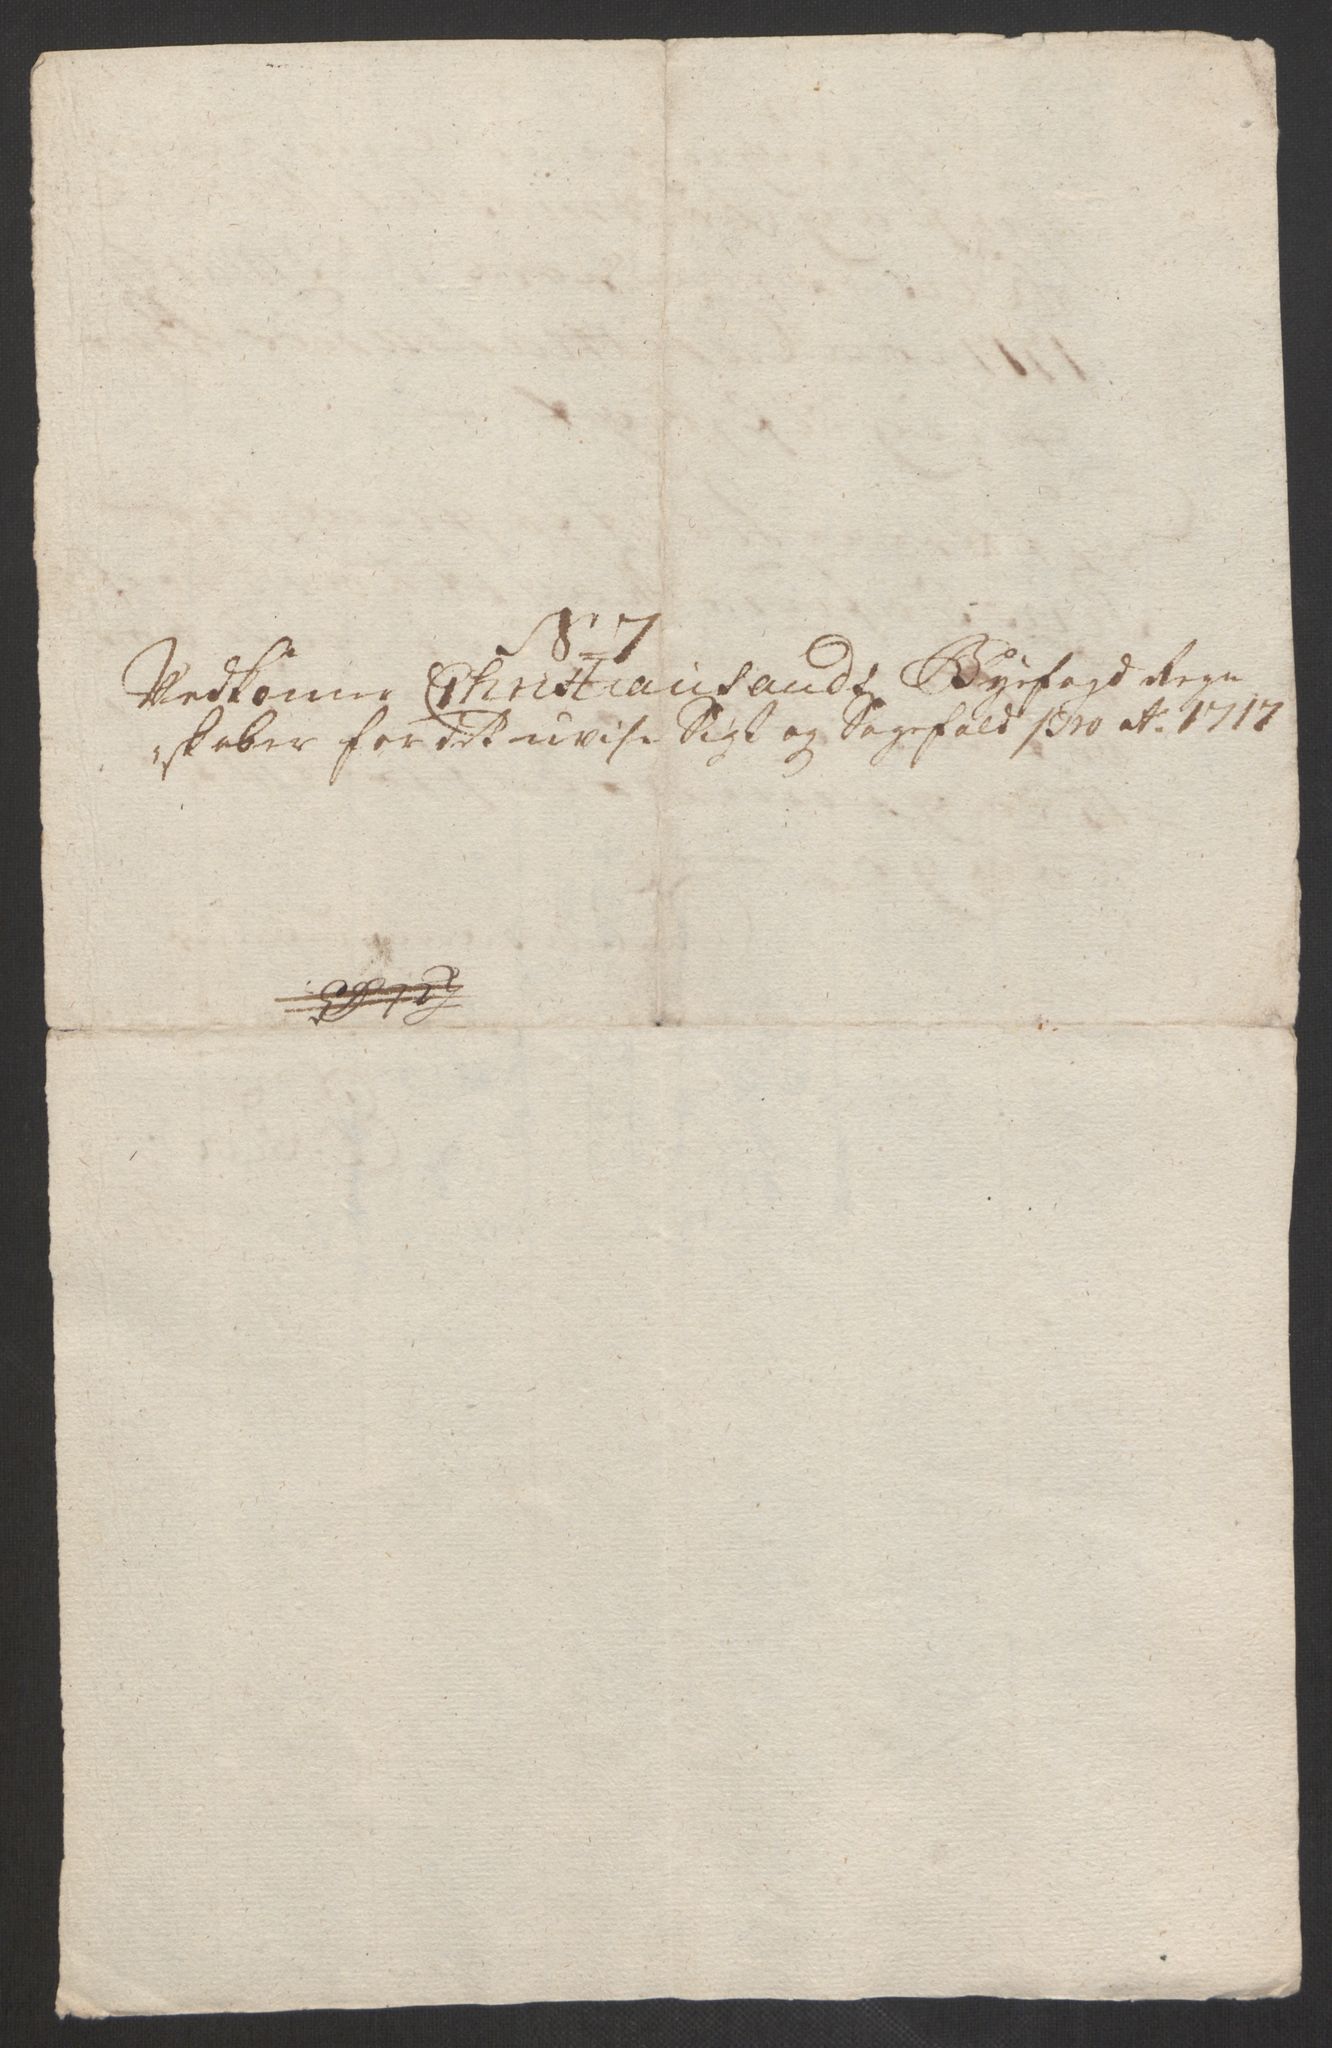 No 7
Vedkommer Christiansandts Byefogd Regn
skaber for det uvise Sigt og Sagefald pro Ao 1717